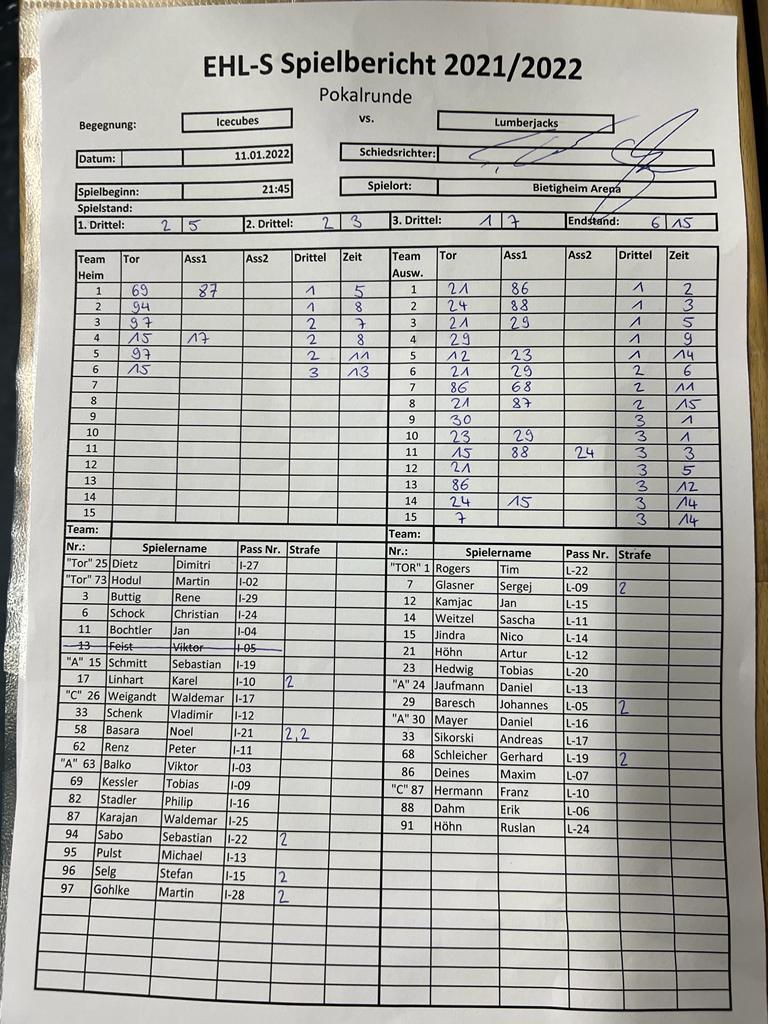 EHL-S Spielbericht 2021/2022
Pokalrunde
Begegnung: Icecubes vs. Lumberjacks
Datum: 11.01.2022 Schiedsrichter:
Spielbeginn: 21:45 Spielort: Bietigheim Arena
Spielstand:
1. Drittel: 2 5 2. Drittel: 2 3 3. Drittel: 1 7 Endstand: 6 15
Team Heim Tor Ass1 Ass2 Drittel Zeit Team Ausw. Tor Ass1 Ass2 Drittel Zeit
1 69 87 1 5 1 21 86 1 2
2 94 1 8 2 24 88 1 3
3 97 2 7 3 21 29 1 5
4 15 17 2 8 4 29 1 9
5 97 2 11 5 12 23 1 14
6 15 3 13 6 21 29 2 6
7 7 86 68 2 11
8 8 21 87 2 15
9 9 30 3 1
10 10 23 29 3 1
11 11 15 88 24 3 3
12 12 21 3 5
13 13 86 3 12
14 14 24 15 3 14
15 15 7 3 14
Team: Team:
Nr.: Spielername Pass Nr. Strafe Nr.: Spielername Pass Nr. Strafe
"Tor" 25 Dietz Dimitri I-27 "TOR" 1 Rogers Tim L-22
"Tor" 73 Hodul Martin I-02 7 Glasner Sergej L-09 2
3 Buttig Rene I-29 12 Kamjac Jan L-15
6 Schock Christian I-24 14 Weitzel Sascha L-11
11 Bochtler Jan I-04 15 Jindra Nico L-14
13 Feist Viktor I-05 21 Höhn Artur L-12
"A" 15 Schmitt Sebastian I-19 23 Hedwig Tobias L-20
17 Linhart Karel I-10 2 "A" 24 Jaufmann Daniel L-13
"C" 26 Weigandt Waldemar I-17 29 Baresch Johannes L-05 2
33 Schenk Vladimir I-12 "A" 30 Mayer Daniel L-16
58 Basara Noel I-21 2,2 33 Sikorski Andreas L-17
62 Renz Peter I-11 68 Schleicher Gerhard L-19 2
"A" 63 Balko Viktor I-03 86 Deines Maxim L-07
69 Kessler Tobias I-09 "C" 87 Hermann Franz L-10
82 Stadler Philip I-16 88 Dahm Erik L-06
87 Karajan Waldemar I-25 91 Höhn Ruslan L-24
94 Sabo Sebastian I-22 2
95 Pulst Michael I-13
96 Selg Stefan I-15 2
97 Gohlke Martin I-28 2